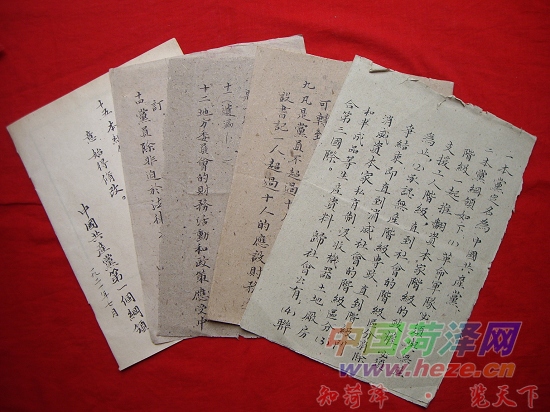 一本黨定名為中國共產黨
二本黨綱領如下(1)革命軍隊必須與無產
階級
支援工人階級直到社會的階級
為止(2)承認無產階級專政直到階級鬥
爭結束即直到消滅社會的階級區分(3)
消滅資本家私有制沒收機器土地廠房
和半成品等生產資料歸社會公有(4)聯
合第三國際。
九凡是黨員不超過十人的
設書記一人超過十人的應設財務
十二地方委員會的財務活動和政策應受中
訂
十四黨員除非迫於法律
十五本綱
意始得修改。
中國共產黨第一個綱領
一九二一年七月
中国菏泽网
www.heze.cn
知菏泽·览天下